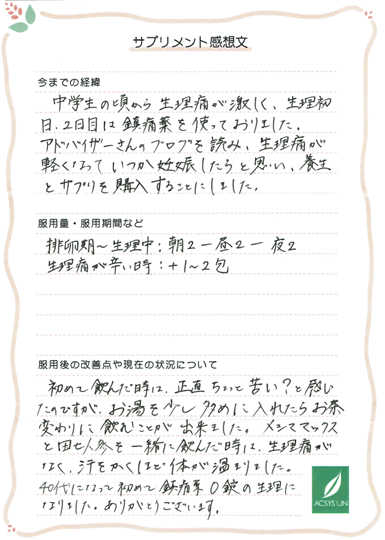 サプリメント感想文
今までの経緯
中学生の頃から生理痛が激しく、生理初
日、2日目は鎮痛薬を使っておりました。
アドバイザーさんのブログを読み、生理痛が
軽くなっていつか妊娠したらと思い、養生
とサプリを購入することにしました。
服用量・服用期間など
排卵期～生理中：朝2－昼2－夜2
生理痛が辛い時：＋1～2包
服用後の改善点や現在の状況について
初めて飲んだ時は、正直ちょっと苦い？と感じ
たのですが、お湯を少し多めに入れたらお茶
変わりに飲むことが出来ました。メンズマックス
と田七人参を一緒に飲んだ時は、生理痛が
なく、汗をかくほど体が温まりました。
40代になって初めて鎮痛薬0錠の生理に
なりました。ありがとうございます。
ACSYS UN